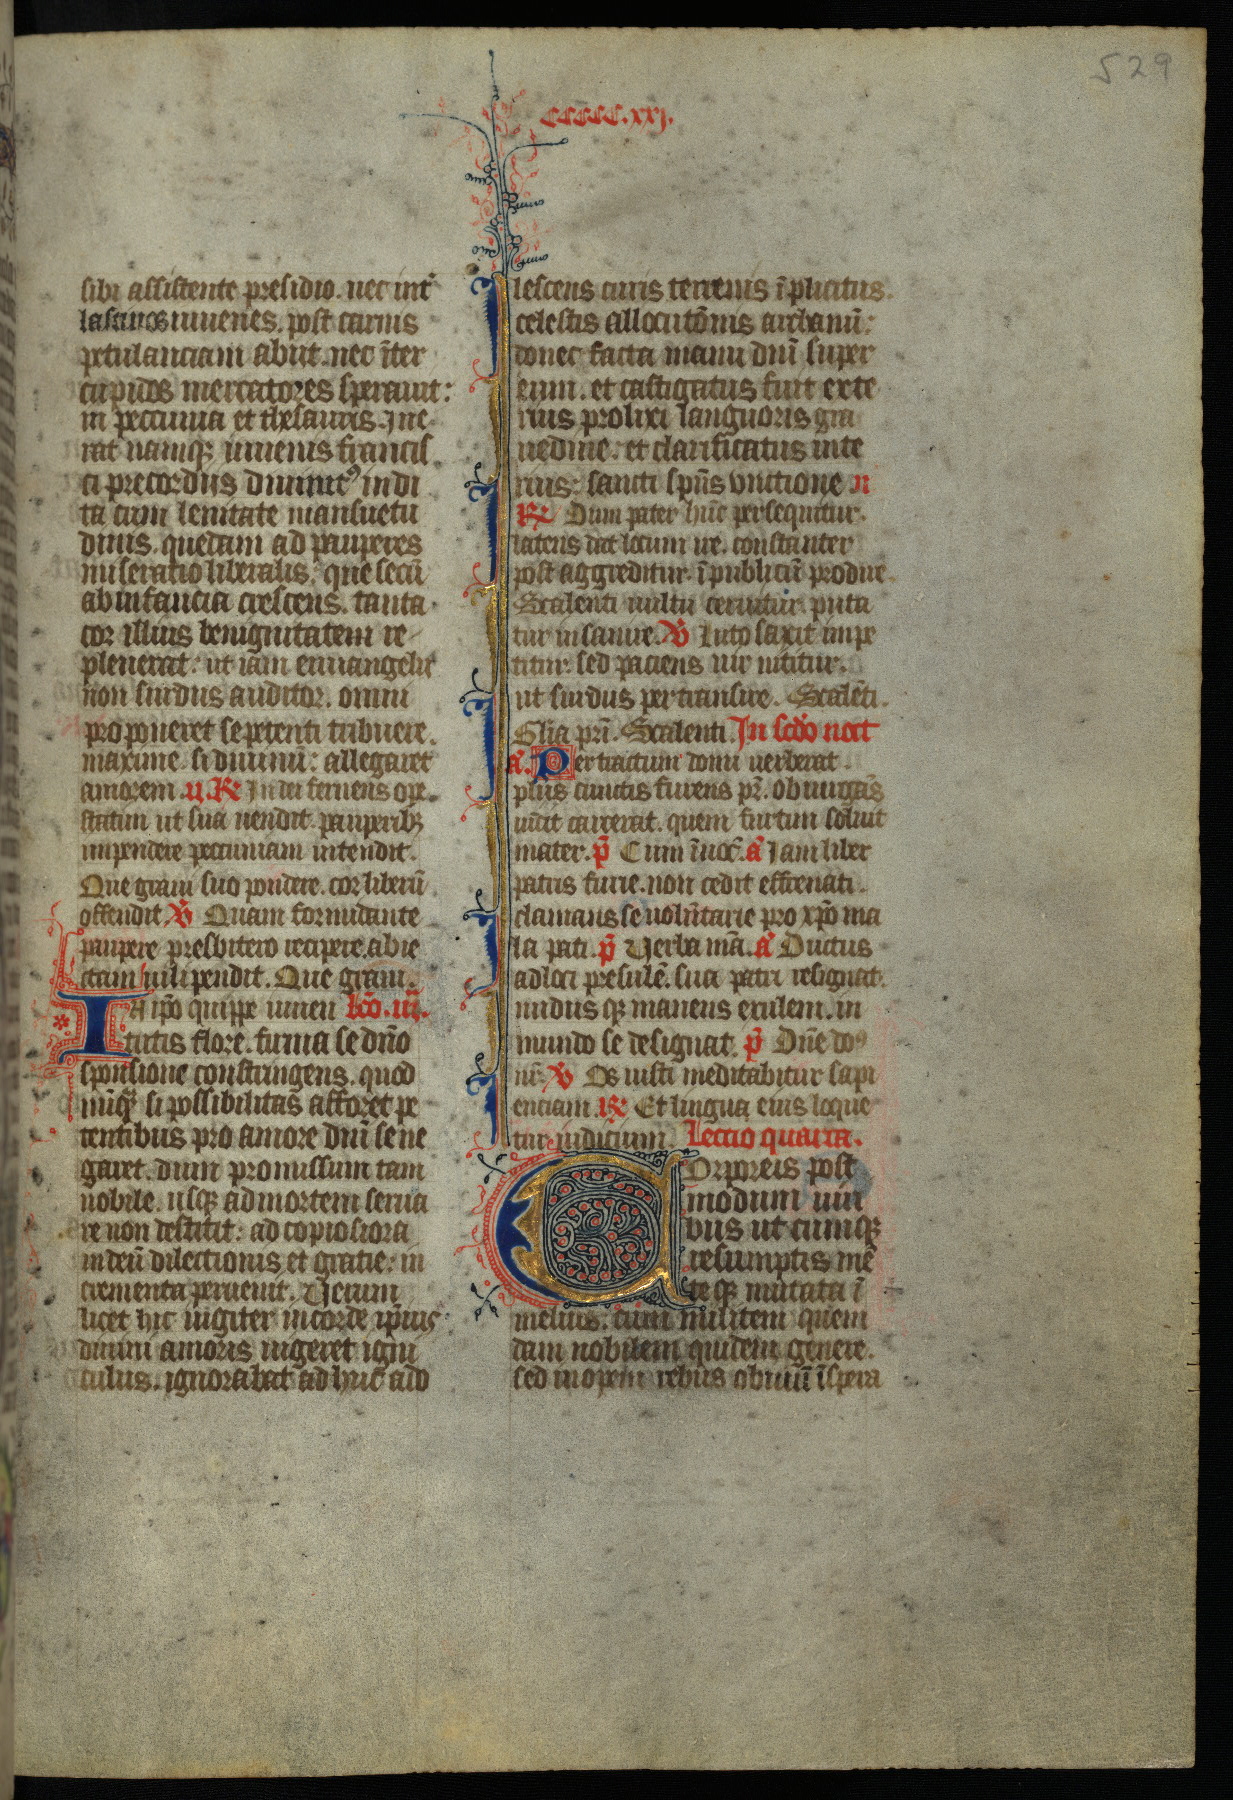 529
CCCCC.xxj.
sibi assistente presidio. nec int᷑
lascivos iuvenes. post carnis
petulanciam abiit. nec īter
cupidos mercatores speravit:
in peccunia et thesauris. Ine
rat namqꝫ iuvenis francis
ci precordiis divinitꝰ indi
ta cum lenitate mansuetu
dinis. quedam ad pauperes
miseratio liberalis. que secū
ab infancia crescens. tanta
cor illius benignitatem re
plenerat: ut iam euuangelii
non surdus auditor. omni
proponeret se petenti tribuere.
maxime si divinū: allegaret
amorem. ii. ℟ In dei fervens ope.
statim ut sua vendit. pauperibꝫ
impendere peccuniam intendit.
Que gravi suo pondere. cor liberū
offendit. ℣ Quam formidante
paupere presbitero recipere. abie
ctam vili pendit. Que gravi.
IN ip̄o quippe iuven lc̄o. iii.
tutis flore. firma se dn̄o
sponsione constringens. quod
nūqꝫ si possibilitas afforet pe
tentibus pro amore dn̄i se ne
garet. dum promissum tam
nobile. usqꝫ ad mortem serva
re non destitit: ad copiosiora
in deū dilectionis et gratie: in
crementa pervenit. Verum
licet hic iugiter in corde ip̄ius
divini amoris vigeret igni
culus. ignorabat adhuc ado
lescens curis terrenis īplicitus.
celestis allocutōnis archanū:
donec facta manu dn̄i super
eum. et castigatus fuit exte
rius prolixi languoris gra
vedine: et clarificatus inte
rius: sancti sp̄us vnctione n
℟ Dum pater hūc persequitur.
latens dat locum ire. constanter
post aggreditur. ī publicū prodire.
Scalenti vultu cernitur. puta
tur insanire. ℣ Luto saxis impe
titur: sed paciens vir nititur.
ut surdus pertransire. Scalēti.
Gl̄ia pr̄i. Scalenti. In scd̄o noct
a. Pertractum domi verberat
plus cunctis furens pr̄. obiurgās
vīcit carcerat. quem furtim solvit
mater. p̄ Cum īvoc̄. a Iam liber
patris furie. non cedit effrenati.
clamans se volūtarie pro xp̄o ma
la pati. p̄ Verba mā. a Ductus
ad loci presulē. sua patri resignat.
nudusqꝫ manens exulem. in
mundo se designat. p̄ Dn̄e doꝰ
nr̄. ℣ Os iusti meditabitur sapi
enciam. ℟ Et lingua eius loque
tur iudicium. Lectio quarta.
Corporeis post
modum viri
bus ut cumqꝫ
resumptis mē
teqꝫ mutata ī
melius. cum militem quem
dam nobilem quidem genere.
sed inopem rebus obviū īspera